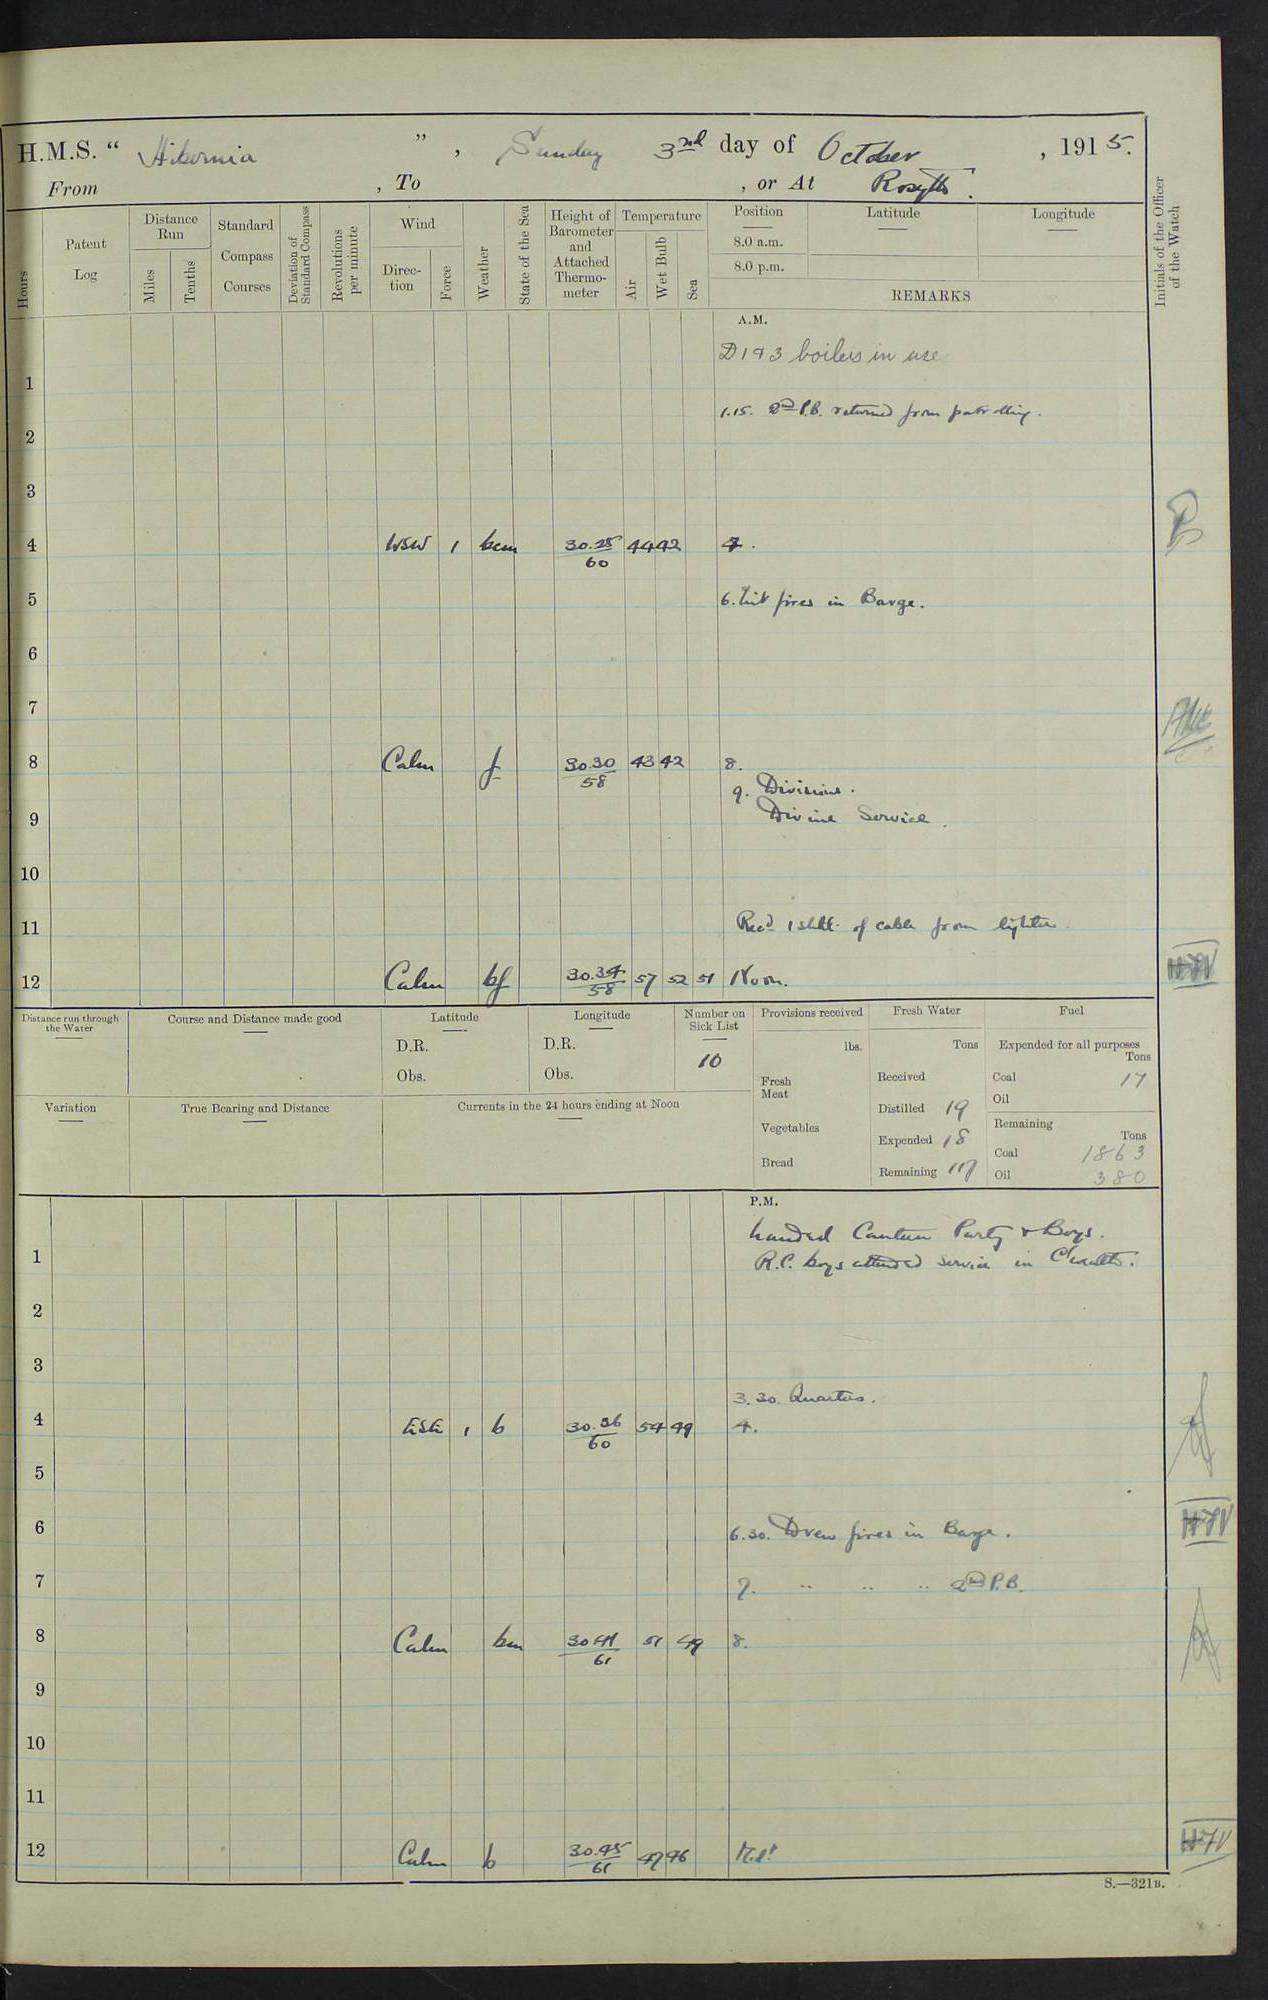 H.M.S. " Hibernia " , Sunday 3rd day of October , 1915.
From , To , or At Rosyth.
Hours
Patent Log
Distance Run
Miles
Tenths
Standard Compass Courses
Deviation of Standard Compass
Revolutions per minute
Wind
Direction
Force
Weather
State of the Sea
Height of Barometer and Attached Thermometer
Temperature
Air
Wet Bulb
Sea
Position
8.0 a.m.
8.0 p.m.
Latitude
Longitude
REMARKS
Initials of the Officer of the Watch
A.M.
D 1 & 3 boilers in use
1
1.15. 2nd P.B. returned from patrolling.
2
3
4 WSW 1 bcm 30.28/60 44 42 4.
5 6. Lit fires in Barge.
6
7
8 Calm f 30.30/58 43 42 8.
9. Divisions.
9 Divine Service.
10
11 Recd 1 shkl. of cable from lighter.
12 Calm bf 30.34/58 57 52 51 Noon.
Distance run through the Water
Course and Distance made good
Latitude
D.R.
Obs.
Longitude
D.R.
Obs.
Number on Sick List
10
Provisions received
lbs.
Fresh Meat
Vegetables
Bread
Fresh Water
Tons
Received
Distilled 19
Expended 18
Remaining 117
Fuel
Expended for all purposes
Tons
Coal 17
Oil
Remaining
Tons
Coal 1863
Oil 380
Variation
True Bearing and Distance
Currents in the 24 hours ending at Noon
P.M.
Landed Canteen Party & Boys.
1 R.C. boys attended service in
2
3
3.30. Quarters.
4 ESE 1 b 30.36/60 54 49 4.
5
6 6.30. Drew fires in Barge.
7 7. " " " 2nd P.B.
8 Calm bm 30.41/61 51 49 8.
9
10
11
12 Calm b 30.45/61 47 46 Mdt
S.—321B.